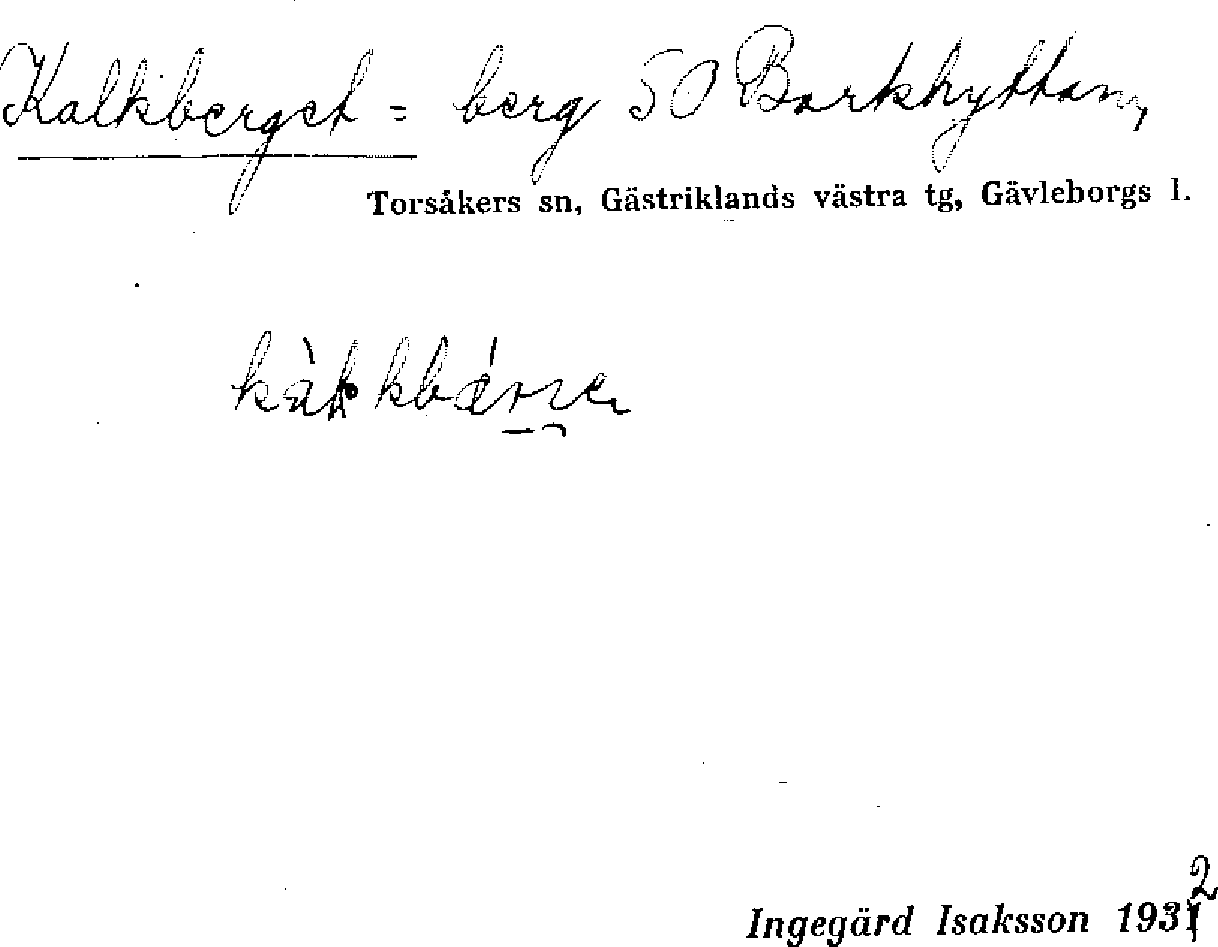 Kalkberget = berg SO Barkhyttan,
Torsåkers sn, Gästriklands västra tg, Gävleborgs l.
Ingegärd Isaksson 1932